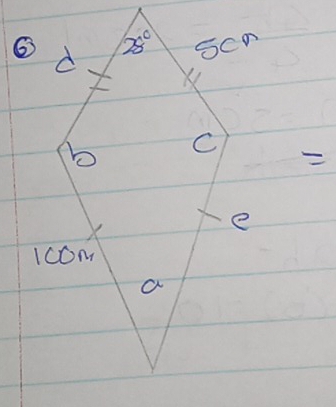 6
28°
5cm
d
b
c
=
e
10cm
a